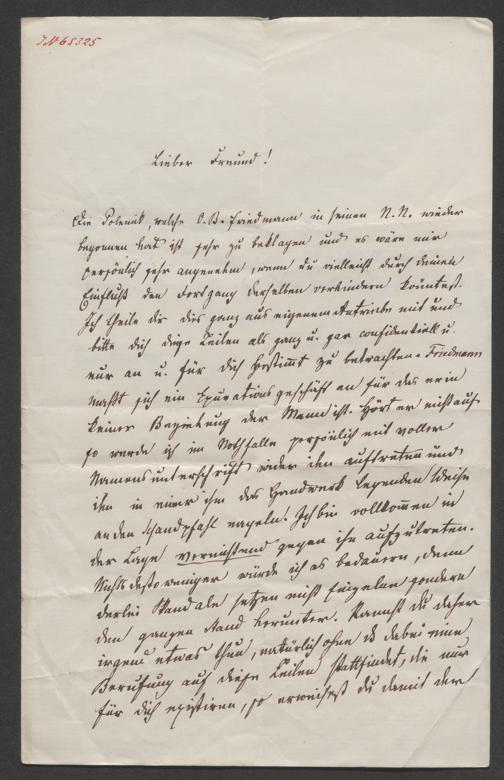 JN 68325
Lieber Freund!
Die Polemik, welche O. B. Friedmann in seinen N. N. wieder
begonnen hat ist sehr zu beklagen und es wäre mir
persönlich sehr angenehm, wenn du vielleicht durch deinen
Einfluß den Fortgang derselben verhindern könntest.
Ich theile dir dies ganz aus eigenem Antriebe mit und
bitte dich diese Zeilen als ganz u. gar confidentiell u.
nur an u. für dich bestimmt zu betrachten. Friedmann
maßt sich ein geschäft an für das er in
keiner Beziehung der Mann ist. Hört er nicht auf
so werde ich im Nothfalle persönlich mit voller
Namensunterschrift wider ihn auftreten und
ihn in einer ihm das Handwerk legenden Weise
an den Schandpfahl nageln. Ich bin vollkommen in
der Lage vernichtend gegen ihn aufzutreten.
Nichts destoweniger würde ich es bedauern, denn
derlei Skandale setzen nicht einzelne sondern
den ganzen Stand herunter. Kannst du daher
irgend etwas thun, natürlich ohne daß dabei eine
Berufung auf diese Zeilen stattfindet, die nur
für dich existiren, so erweisest du damit der